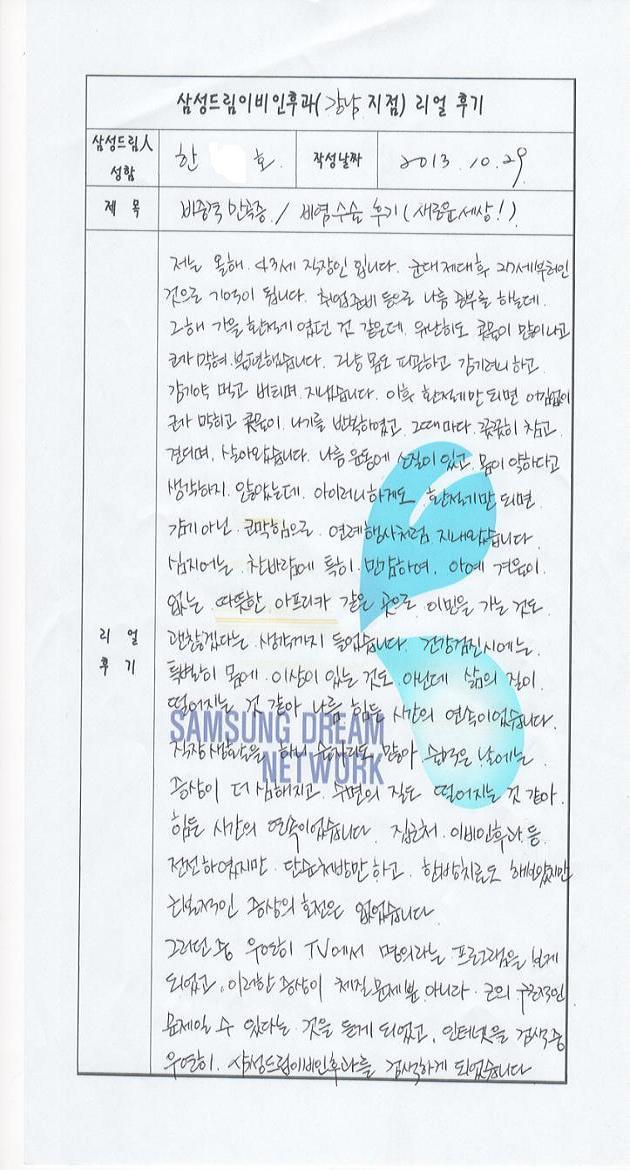 삼성드림이비인후과(강남 지점) 리얼 후기
삼성드림人 성함
한 호
작성날짜
2013. 10. 29
제 목
비중격 만곡증 / 비염수술 후기 (새로운세상!)
리 얼 후 기
저는 올해 43세 직장인 입니다. 군대제대후 27세부터인
것으로 기억이 됩니다. 취업준비 등으로 나름 공부를 하는데.
그해 가을 환절기 였던 것 같은데. 유난히도 콧물이 많이나고
코가 막혀 불편했습니다. 그냥 몸도 피곤하고 감기려니 하고.
감기약 먹고 버티며 지냈습니다. 이후 환절기만 되면 어김없이
코가 막히고 콧물이 나기를 반복하였고. 그때마다 꿋꿋히 참고
견디며, 살아왔습니다. 나름 운동에 소질이 있고 몸이 약하다고
생각하지 않았는데. 아이러니하게도 환절기만 되면
감기 아닌 코막힘으로 연례행사처럼 지내왔습니다
심지어는 찬바람에 특히 민감하여, 아예 겨울이
없는 따뜻한 아프리카 같은 곳으로 이민을 가는 것도
괜찮겠다는 생각까지 들었습니다. 건강검진시에는
특별히 몸에 이상이 있는 것도 아닌데 삶의 질이
떨어지는 것 같아 나름 힘든 시간의 연속이었습니다.
SAMSUNG DREAM
NETWORK
직장생활을 하니 술자리도 많아 술먹은 날에는
증상이 더 심해지고 수면의 질도 떨어지는 것 같아.
힘든 시간의 연속이었습니다 집근처 이비인후과 등
전전하였지만 단순처방만 하고. 한방치료도 해보았지만
근본적인 증상의 호전은 없었습니다
그러던 중 우연히 TV에서 명의라는 프로그램을 보게
되었고, 이러한 증상이 체질문제뿐 아니라 코의 구조적인
문제일 수 있다는 것을 듣게 되었고, 인터넷을 검색중
우연히 삼성드림이비인후과를 검색하게 되었습니다